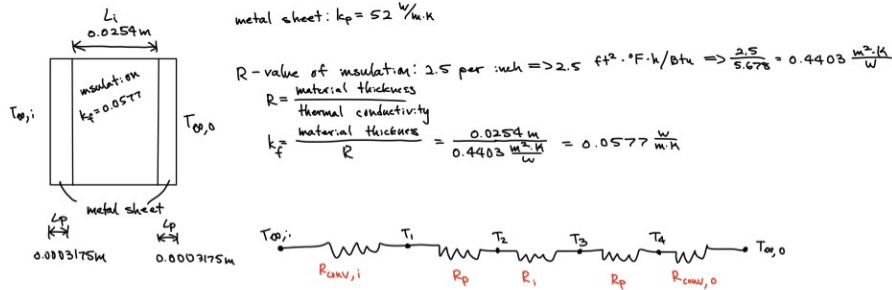 Li
0.0254m
insulation
kf=0.0577
T∞,i
T∞,o
metal sheet
Lp
Lp
0.0003175m
0.0003175m
metal sheet: kp = 52 W/m·K
R-value of insulation: 2.5 per inch => 2.5 ft²·°F·h/Btu => 2.5/5.678 = 0.4403 m²·K/W
R = material thickness / thermal conductivity
kf = material thickness / R = 0.0254 m / 0.4403 m²·K/W = 0.0577 W/m·K
T∞,i T1 T2 T3 T4 T∞,o
Rconv,i Rp Ri Rp Rconv,o